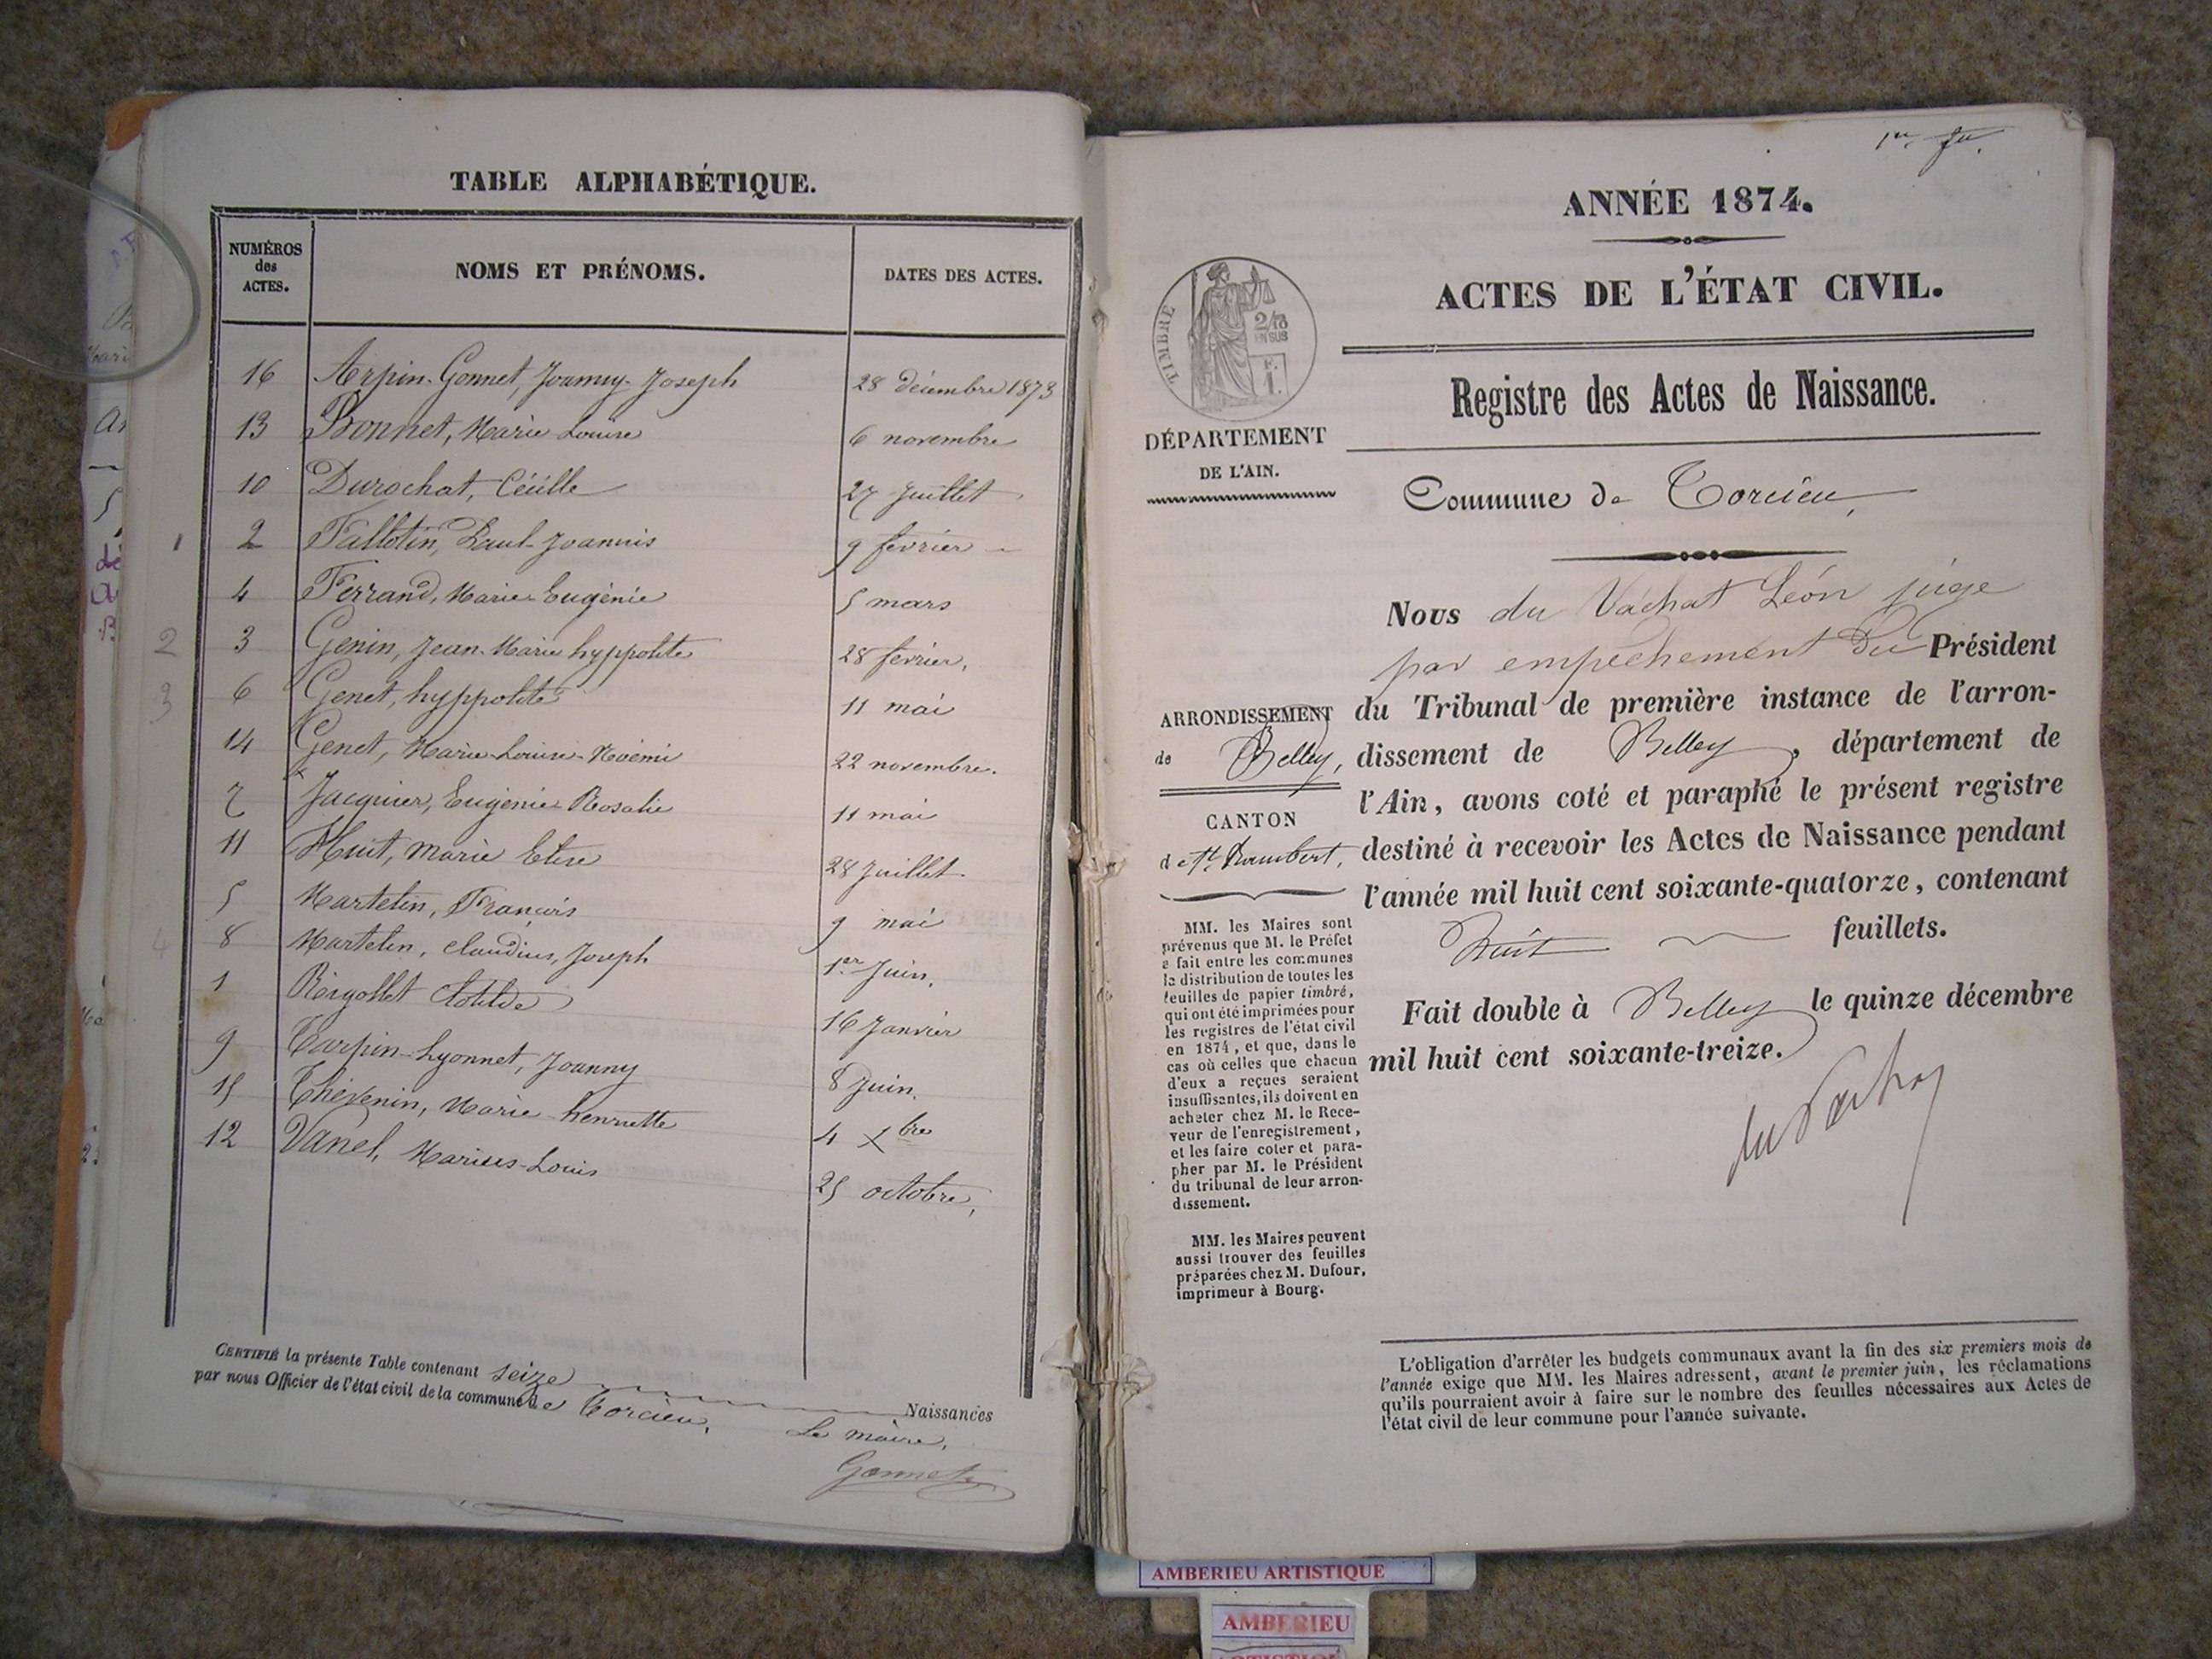 TABLE ALPHABÉTIQUE.
NUMÉROS des ACTES.
NOMS ET PRÉNOMS.
DATES DES ACTES.
16 Arpin-Gonnet, Joanny-Joseph 28 décembre 1873
13 Bonnet, Marie Louise 6 novembre
10 Durochat, Cécille 27 Juillet
2 Fallotin, Paul-Joannis 9 février
4 Ferrand, Marie Eugénie 5 mars
3 Genin, Jean-Marie hyppolite 28 février,
6 Genet, hyppolite 11 mai
14 Genet, Marie-Louise-Noémi 22 novembre.
7 Jacquier, Eugénie Rosalie 11 mai
11 Huit, Marie Elise 28 Juillet
5 Martelin, François 9 mai
8 Martelin, Claudius, Joseph 1er Juin,
1 Rigollet Clotilde 16 Janvier
9 Tarpin-Lyonnet, Joanny 8 Juin.
15 Thévenin, Marie henriette 4 Xbre
12 Vanel, Marius-Louis 25 octobre,
CERTIFIÉ la présente Table contenant seize Naissances
par nous Officier de l'état civil de la commune de Torcieu,
Le maire,
Gonnet
ANNÉE 1874.
ACTES DE L'ÉTAT CIVIL.
TIMBRE
2/10
EN SUS
F.
1.
Registre des Actes de Naissance.
DÉPARTEMENT
DE L'AIN.
Commune de Torcieu,
Nous du Vachat Léon juge
par empêchement du Président
du Tribunal de première instance de l'arron-
dissement de Belley, département de
l'Ain, avons coté et paraphé le présent registre
destiné à recevoir les Actes de Naissance pendant
l'année mil huit cent soixante-quatorze, contenant
huit feuillets.
Fait double à Belley le quinze décembre
mil huit cent soixante-treize.
du Vachat
ARRONDISSEMENT
de Belley,
CANTON
de St Rambert,
MM. les Maires sont
prévenus que M. le Préfet
a fait entre les communes
la distribution de toutes les
feuilles de papier timbré,
qui ont été imprimées pour
les registres de l'état civil
en 1874, et que, dans le
cas où celles que chacun
d'eux a reçues seraient
insuffisantes, ils doivent en
acheter chez M. le Rece-
veur de l'enregistrement,
et les faire coter et para-
pher par M. le Président
du tribunal de leur arron-
dissement.
MM. les Maires peuvent
aussi trouver des feuilles
préparées chez M. Dufour,
imprimeur à Bourg.
L'obligation d'arrêter les budgets communaux avant la fin des six premiers mois de
l'année exige que MM. les Maires adressent, avant le premier juin, les réclamations
qu'ils pourraient avoir à faire sur le nombre des feuilles nécessaires aux Actes de
l'état civil de leur commune pour l'année suivante.
AMBERIEU ARTISTIQUE
AMBERIEU
ARTISTIQUE